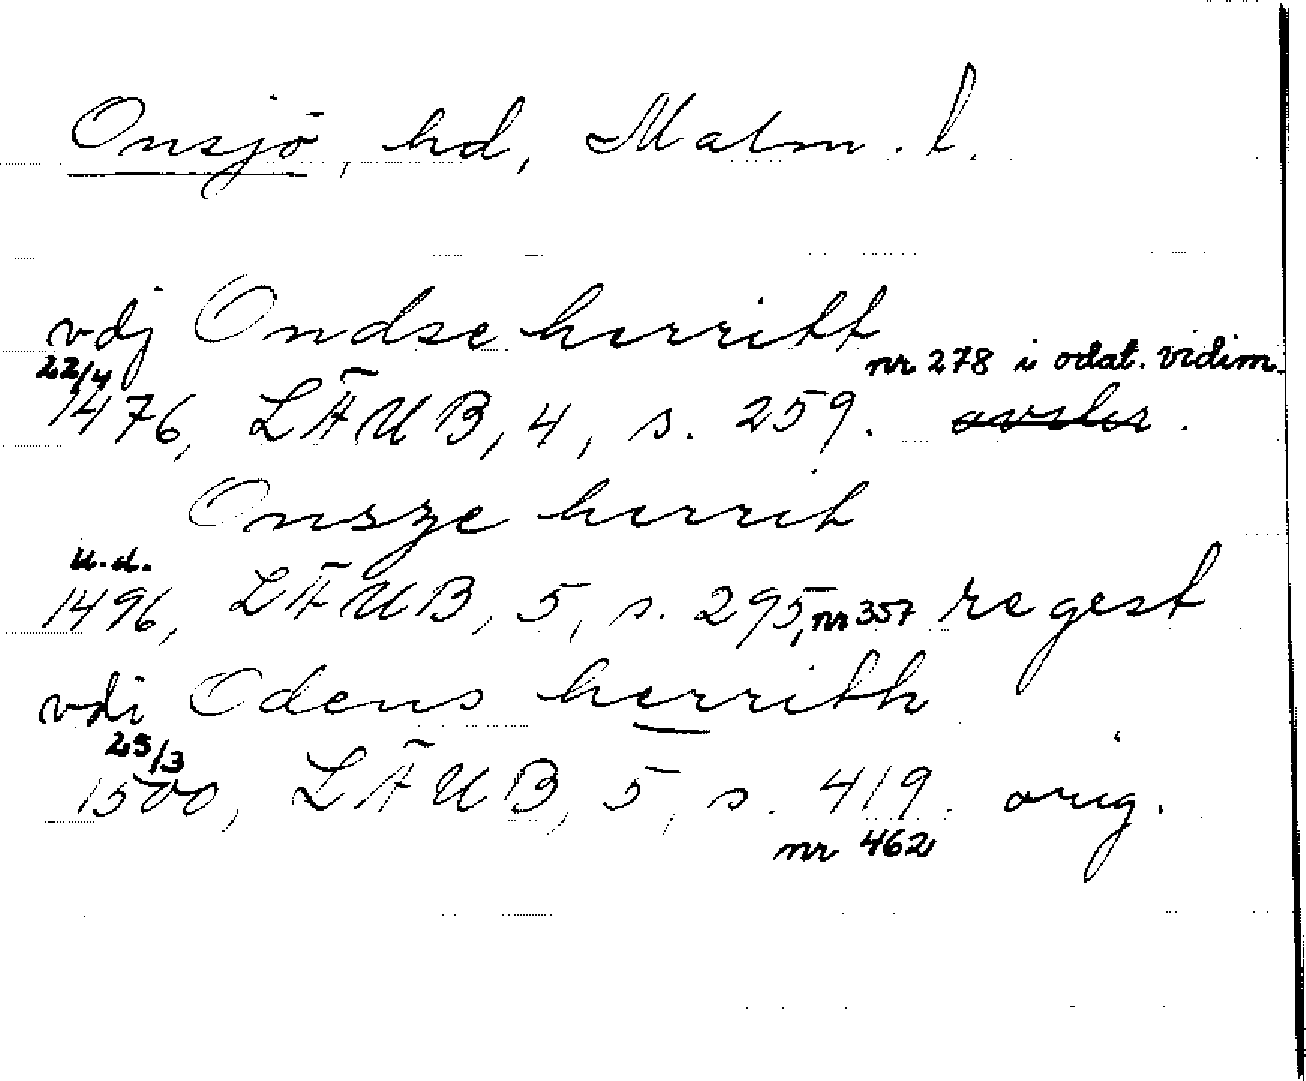 Onsjö, hd, Malm. l.
vdj Ondse herritt
22/4 nr 278 i odat. vidim.
1476, LÄUB, 4, s. 259.
Onsze herrit
u.d.
1496, LÄUB, 5, s. 295, nr 357 regest
vdi Odens herrith
25/3
1500, LÄUB, 5, s. 419. orig.
nr 462